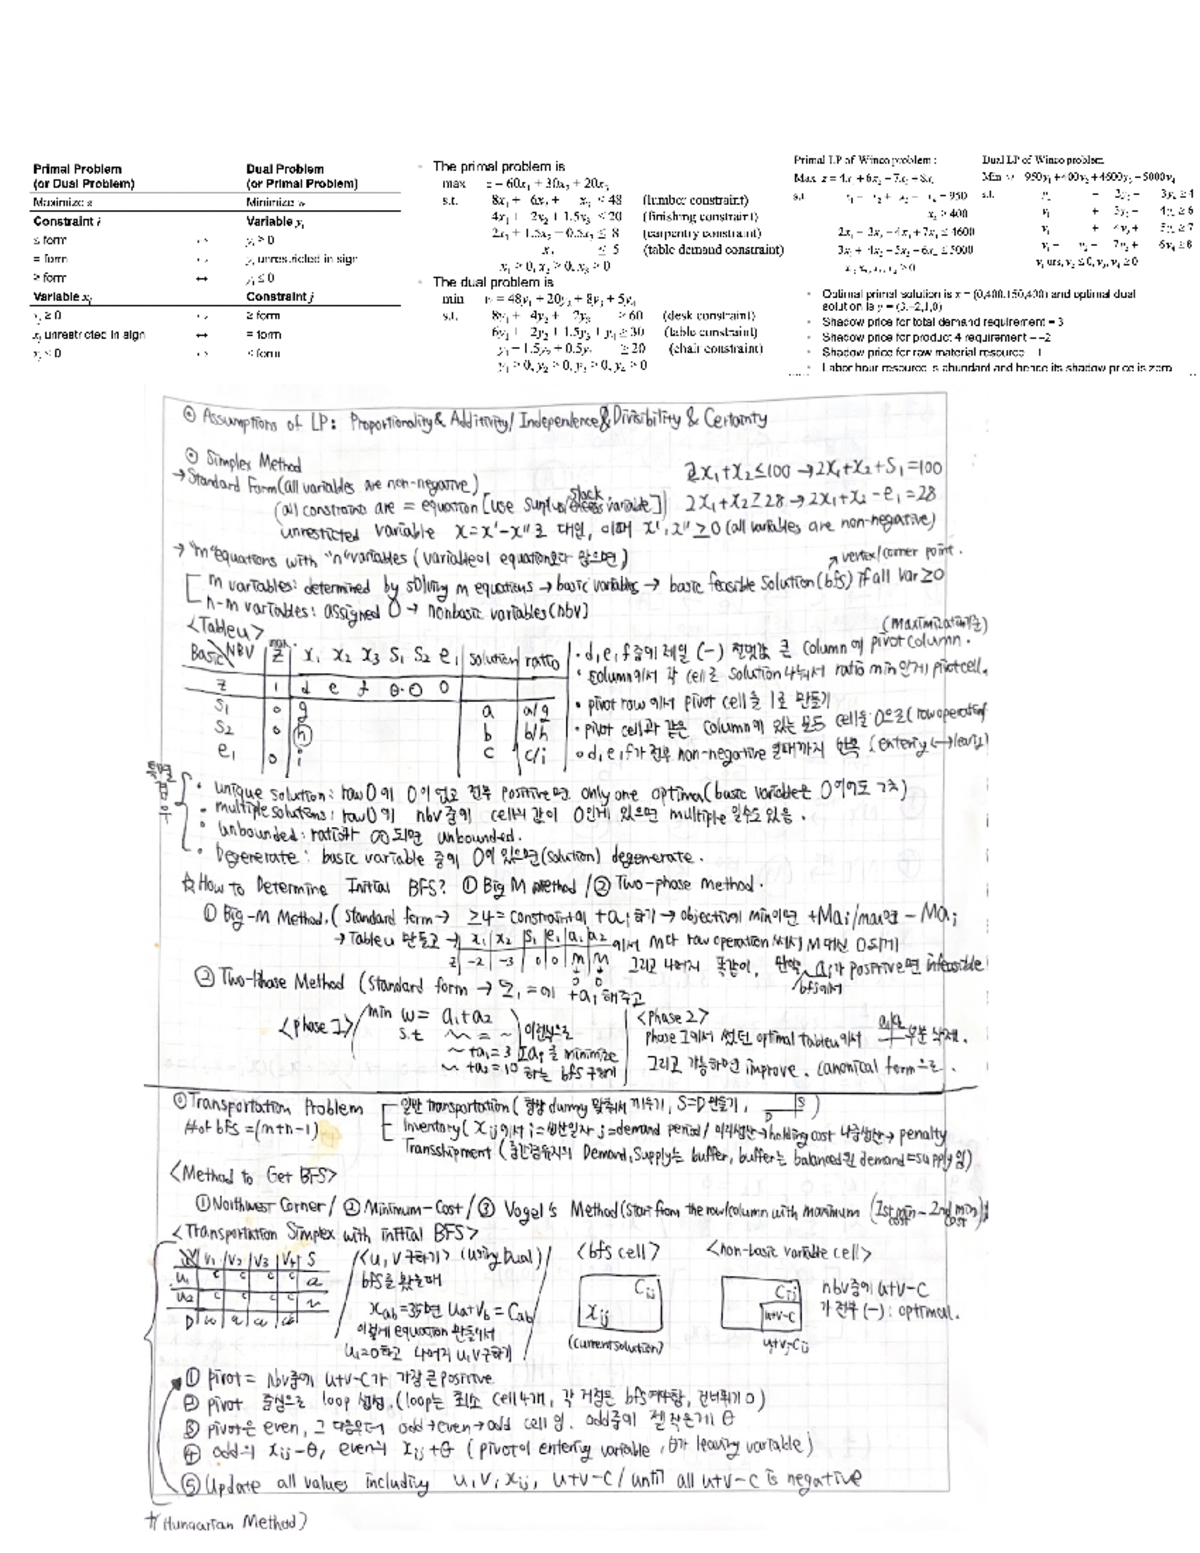 Primal Problem
(or Dual Problem)
Dual Problem
(or Primal Problem)
Maximize z
Minimize w
Constraint i
Variable yᵢ
≤ form ↔ yᵢ ≥ 0
= form ↔ yᵢ unrestricted in sign
≥ form ↔ yᵢ ≤ 0
Variable xⱼ
Constraint j
xⱼ ≥ 0 ↔ ≥ form
xⱼ unrestricted in sign ↔ = form
xⱼ ≤ 0 ↔ ≤ form
The primal problem is
max z = 60x₁ + 30x₂ + 20x₃
s.t. 8x₁ + 6x₂ + x₃ ≤ 48 (lumber constraint)
4x₁ + 2x₂ + 1.5x₃ ≤ 20 (finishing constraint)
2x₁ + 1.5x₂ + 0.5x₃ ≤ 8 (carpentry constraint)
x₂ ≤ 5 (table demand constraint)
x₁ ≥ 0, x₂ ≥ 0, x₃ ≥ 0
The dual problem is
min w = 48y₁ + 20y₂ + 8y₃ + 5y₄
s.t. 8y₁ + 4y₂ + 2y₃ ≥ 60 (desk constraint)
6y₁ + 2y₂ + 1.5y₃ + y₄ ≥ 30 (table constraint)
y₁ + 1.5y₂ + 0.5y₃ ≥ 20 (chair constraint)
y₁ ≥ 0, y₂ ≥ 0, y₃ ≥ 0, y₄ ≥ 0
Primal LP of Winco problem :
Max z = 4x₁ + 6x₂ + 7x₃ + 8x₄
s.t. x₁ + x₂ + x₃ + x₄ = 950
x₄ ≥ 400
2x₁ + 3x₂ + 4x₃ + 7x₄ ≤ 4600
3x₁ + 4x₂ + 5x₃ + 6x₄ ≤ 5000
x₁, x₂, x₃, x₄ ≥ 0
Dual LP of Winco problem
Min w 950y₁ + 400y₂ + 4600y₃ + 5000y₄
s.t. y₁ + 2y₃ + 3y₄ ≥ 4
y₁ + 3y₃ + 4y₄ ≥ 6
y₁ + 4y₃ + 5y₄ ≥ 7
y₁ + y₂ + 7y₃ + 6y₄ ≥ 8
y₁ urs, y₂ ≤ 0, y₃, y₄ ≥ 0
Optimal primal solution is x = (0,400,150,400) and optimal dual
solution is y = (3,-2,1,0)
Shadow price for total demand requirement = 3
Shadow price for product 4 requirement = -2
Shadow price for raw material resource = 1
Labor hour resource is abundant and hence its shadow price is zero
⊙ Assumptions of LP: Proportionality & Additivity/Independence & Divisibility & Certainty
⊙ Simplex Method
→ Standard Form (all variables are non-negative)
2x₁+x₂≤100 → 2x₁+x₂+S₁=100
(all constraints are = equation [use surplus/slack variable]) 2x₁+x₂≥28 → 2x₁+x₂-e₁=28
unrestricted variable x=x'-x''로 대입, 이때 x', x''≥0 (all variables are non-negative)
→ "m" equations with "n" variables (variable이 equation보다 많으면)
↗ vertex/corner point.
m variables: determined by solving m equations → basic variables → basic feasible solution (bfs) if all var≥0
n-m variables: assigned 0 → nonbasic variables (nbv)
<Tableu>
(maximization기준)
Basic NBV z x₁ x₂ x₃ S₁ S₂ e₁ solution ratio
z 1 d e f 0 0 0
S₁ 0 g a a/g
S₂ 0 h b b/h
e₁ 0 i c c/i
• d, e, f중에 제일 (-) 절댓값 큰 column이 pivot column.
• column에서 각 cell로 solution 나눠서 ratio min인게 pivot cell.
• pivot row에서 pivot cell을 1로 만들기
• pivot cell과 같은 column에 있는 모든 cell을 0으로 (row operation)
• d, e, f가 전부 non-negative 일때까지 반복 (entering ↔ leaving)
특별한 경우
• unique solution: row0에 0이 없고 전부 positive면 only one optimal (basic variable은 0이어도 괜찮)
• multiple solutions: row0에 nbv 중에 cell의 값이 0인게 있으면 multiple 일수도 있음.
• Unbounded: ratio가 ∞되면 unbounded.
• Degenerate: basic variable 중에 0이 있으면 (solution) degenerate.
☆ How to Determine Initial BFS? ① Big M method / ② Two-phase method.
① Big-M Method. (standard form → ≥나 = constraint에 +aᵢ하기 → objective에 min이면 +Maᵢ/max면 -Maᵢ
→ Tableu 만들고 → x₁ x₂ S₁ e₁ a₁ a₂ 에서 M다 row operation 써서 M대신 0되게
z -2 -3 0 0 M M
0 0
그리고 나머지 똑같이. 만약 aᵢ가 positive면 infeasible
bfs에서
② Two-Phase Method (standard form → ≥, =에 +aᵢ 해주고
<phase 1> min w= a₁+a₂
s.t ~ = ~
~ +a₁=3
~ +a₂=10
이런식으로
Σaᵢ를 minimize
하는 bfs 구하기
<phase 2>
phase 1에서 썼던 optimal tableu에서 a₁a₂ 부분 삭제.
그리고 가능하면 improve. canonical form으로.
⊙ Transportation Problem
# of bfs =(m+n-1)
일반 transportation (항상 dummy 맞춰서 끼우기, S=D 만들기, D S)
Inventory (xᵢⱼ에서 i=생산일자 j=demand period/ 미리생산→holding cost 나중생산→ penalty
Transshipment (중간경유지의 Demand, Supply는 buffer, buffer는 balanced된 demand=supply임)
<Method to Get BFS>
① Northwest Corner / ② Minimum-Cost / ③ Vogel's Method (start from the row/column with maximum (1st min cost - 2nd min cost))
<Transportation Simplex with initial BFS>
V₁ V₂ V₃ V₄ S
u₁ c c c c a
u₂ c c c c
D
<u, v 구하기> (using Dual)
bfs를 봤을때
xab=35면 Ua+Vb=Cab
이렇게 equation 만들어서
u₁=0하고 나머지 u, v구하기
<bfs cell>
Cᵢⱼ
xᵢⱼ
(current solution)
<non-basic variable cell>
Cᵢⱼ
u+v-c
uᵢ+vⱼ-cᵢⱼ
nbv중에 u+v-c
가 전부 (-): optimal.
① pivot = nbv중에 u+v-c가 가장 큰 positive
② pivot 중심으로 loop 생성. (loop는 최소 cell 4개, 각 거점은 bfs여야함, 건너뛰기 O)
③ pivot은 even, 그 다음부터 odd→even→odd cell임. odd중에 젤 작은게 θ
④ odd의 xᵢⱼ-θ, even의 xᵢⱼ+θ (pivot이 entering variable, θ가 leaving variable)
⑤ Update all values including u, v, xᵢⱼ, u+v-c / until all u+v-c is negative
(Hungarian Method)